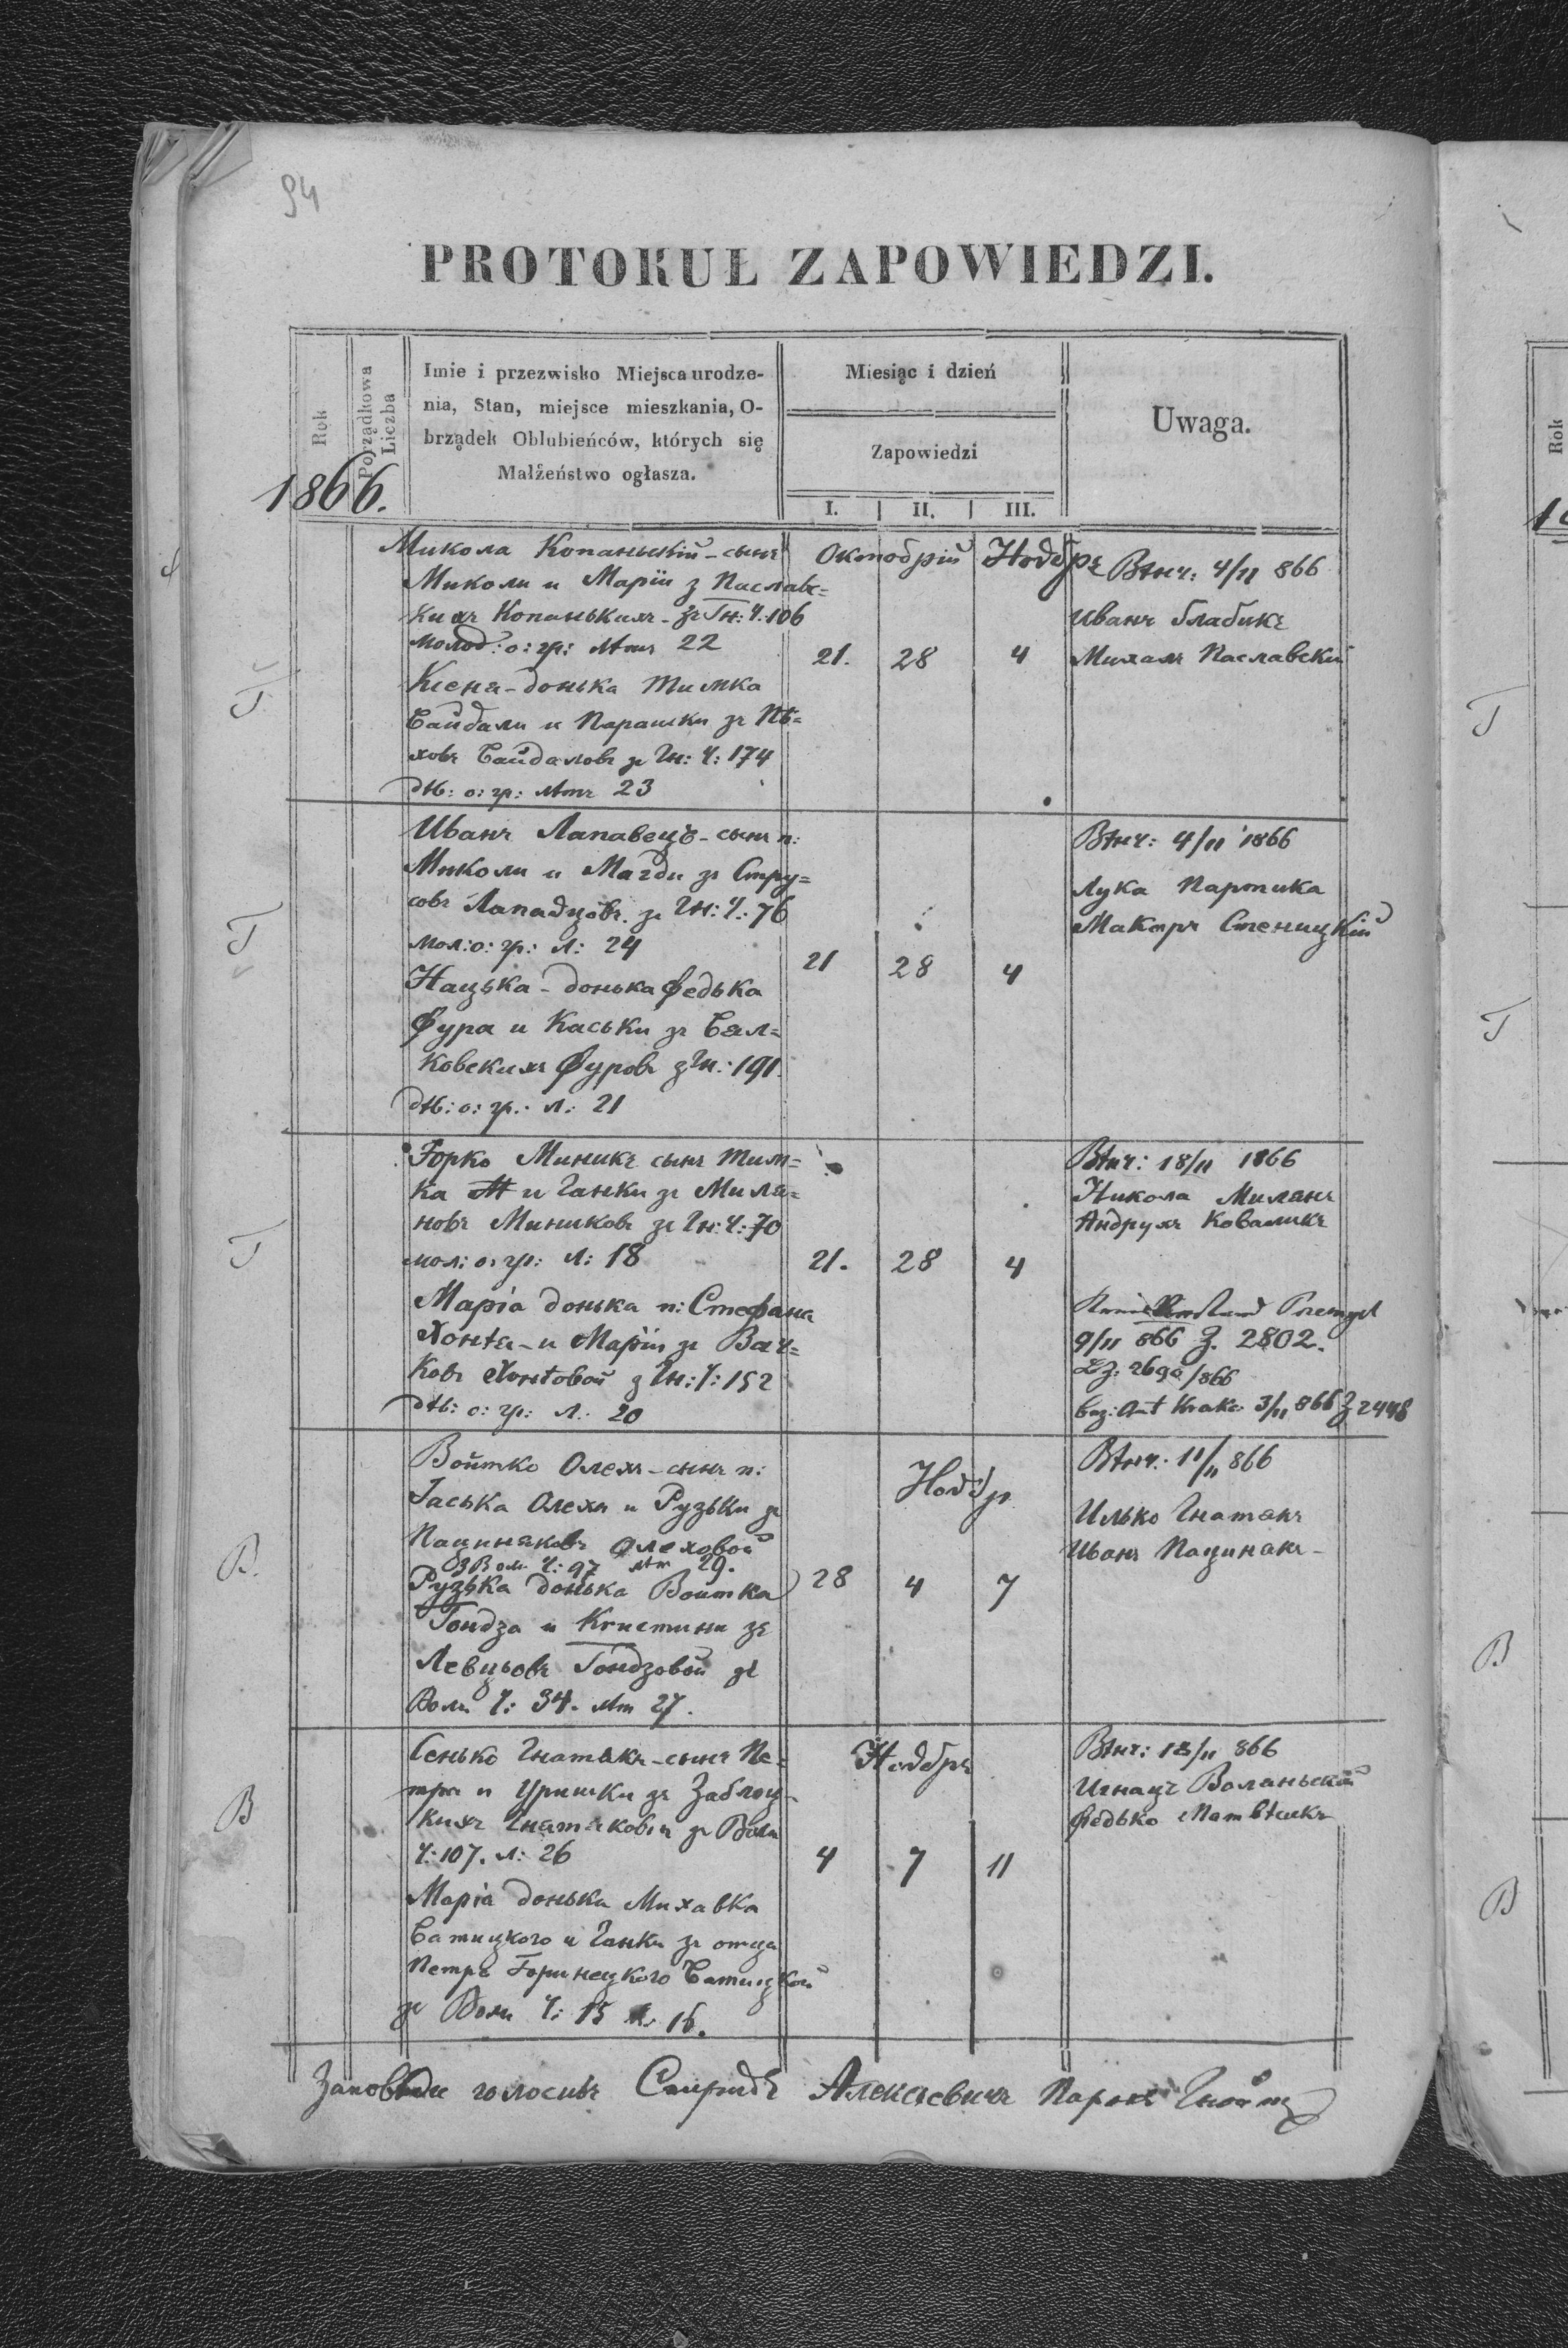 94
PROTOKUŁ ZAPOWIEDZI.
Rok
Porządkowa Liczba
Imie i przezwisko Miejsca urodze-
nia, Stan, miejsce mieszkania, O-
brządek Oblubieńców, których się
Małżeństwo ogłasza.
Miesiąc i dzień
Zapowiedzi
I. II. III.
Uwaga.
1866.
Микола Копанькій - сынъ
Миколи и Маріи з Паславс=
кихъ Копанькихъ - зъ Гн: Ч: 106
молод: о: гр: лѣтъ 22
Ксеня - донька Тимка
Байдали и Парашки зъ Пѣ=
ховъ Байдаловъ зъ Гн: Ч: 174
дѣв: о: гр: лѣтъ 23
Октобрій Ноябръ
21. 28 4
Вѣнч: 4/11 866
Иванъ Слабикъ
Михалъ Паславскій
Т
Иванъ Лапавець - сынъ п:
Миколи и Магди зъ Стру=
совъ Лапавцовъ зъ Гн: Ч: 76
мол: о: гр: л: 24
Нацька - донька Федька
Фура и Каськи зъ Бял=
ковскихъ Фуровъ з Гн: 191.
дѣв: о: гр: л: 21
21 28 4
Вѣнч: 4/11 1866
Лука Партика
Макаръ Стеницкій
Т
Юрко Миникъ сынъ Тим=
ка и Ганки зъ Миля=
новъ Миниковъ зъ Гн: Ч: 70
мол: о: гр: л: 18
Марія донька п: Стефана
Хонтя - и Маріи зъ Вач=
ковъ Хонтовой з Гн: Ч: 152
дѣв: о: гр: л: 20
21. 28 4
Вѣнч: 18/11 1866
Никола Милянъ
Андрухъ Коваликъ
9/11 866 Z. 2802.
3/11 866 Z 2448
Т
Войтко Олехъ - сынъ п:
Гаська Олеха и Рузьки зъ
Пациняковъ Олеховой
з Вол. Ч: 97 лѣт 29.
Рузька донька Войтка
Гондза и Кристини зъ
Левцьовъ Гондзовой зъ
Воли Ч: 34. лѣт 27.
Ноябр
28 4 7
Вѣнч: 11/11 866
Илько Гнатякъ
Иванъ Пацинякъ -
В.
Сенько Гнатякъ - сынъ Пе-
тра и Уришки зъ Заблоц-
кихъ Гнатяковъ зъ Воли
Ч: 107. л: 26
Марія донька Михавка
Батицкого и Ганки зъ отца
Петра Горинецкого Батицкой
зъ Воли Ч: 15 л: 16.
Ноябръ
4 7 11
Вѣнч: 18/11 866
Игнацъ Воланьскій
Федько Матвѣикъ
В
Заповѣди голосивъ Спиридъ Алексевичъ Парохъ